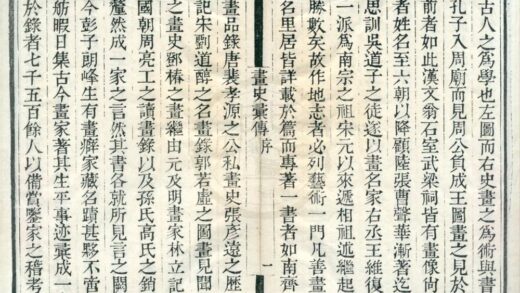 古人之為學也左圖而右史畫之為術與書
孔子入周廟而見周公負成王圖畫之見於
前者如此漢文翁石室武梁祠皆有畫像尚
者姓名至六朝以降顧陸張曹聲華漸著迄
思訓吳道子之徒遂以畫名家右丞王維復
一派為南宗之祖宋元以來遞相祖述繼起
勝數矣故作地志者必列藝術一門凡善畫
名里居皆詳載於篇而專著一書者如南齊
畫史彙傳 序 一
畫品錄唐裴孝源之公私畫史張彥遠之歷
記宋劉道醇之名畫錄郭若虛之圖畫見聞
之畫史鄧椿之畫繼由元及明畫家林立記
國朝周亮工之讀畫錄以及孫氏高氏之鉤
釐然成一家之言然其書各就所見言之闕
今彭子朗峰生有畫癖家藏名蹟甚夥不啻
舫暇日集古今畫家著其生平事迹彙成一
於錄者七千五百餘人以備賞鑒家之稽考